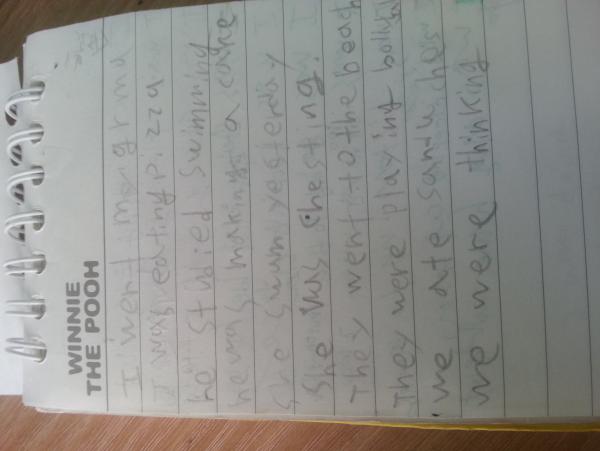 WINNIE
THE POOH
I went my grma
I was eating Pizza
he studied swimming
he was making a cake
She swum yesterday
She was chesting.
They went to the beach
They were playing
we ate sandwiches
we were thinking